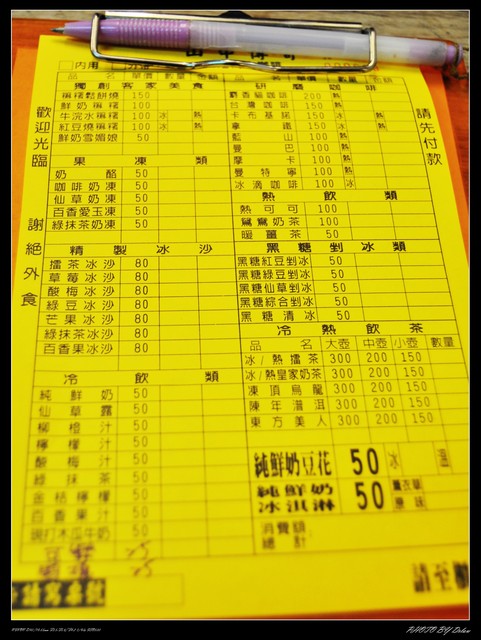 歡迎光臨 謝絕外食
請先付款
內用
品名 單價 數量 金額
獨創客家美食
粄糬鬆餅燒 150
鮮奶粄糬 100
牛浣水粄糬 100 冰 熱
紅豆燒粄糬 100 冰 熱
鮮奶雪媚娘 50
果凍類
奶酪 50
咖啡奶凍 50
仙草奶凍 50
百香愛玉凍 50
綠抹茶奶凍 50
精製冰沙
擂茶冰沙 80
草莓冰沙 80
酸梅冰沙 80
綠豆冰沙 80
芒果冰沙 80
綠抹茶冰沙 80
百香果冰沙 80
冷飲類
純鮮奶 50
仙草露 50
柳橙汁 50
檸檬汁 50
酸梅汁 50
綠抹茶 50
金桔檸檬 50
百香果汁 50
現打木瓜牛奶 50
品名 單價 數量 金額
研磨咖啡
麝香貓咖啡 200 熱
台灣咖啡 150 熱
卡布基諾 150 冰 熱
拿鐵 150 冰 熱
藍山 100 熱
曼巴 100 熱
摩卡 100 熱
曼特寧 100 熱
冰滴咖啡 100 冰
熱飲類
熱可可 100
鴛鴦奶茶 100
暖薑茶 50
黑糖剉冰類
黑糖紅豆剉冰 50
黑糖綠豆剉冰 50
黑糖仙草剉冰 50
黑糖綜合剉冰 50
黑糖清冰 50
冷熱飲茶
品名 大壺 中壺 小壺 數量
冰/熱擂茶 300 200 150
冰/熱皇家奶茶 300 200 150
凍頂烏龍 300 200 150
陳年潽洱 300 200 150
東方美人 300 200 150
純鮮奶豆花 50 冰 溫
純鮮奶冰淇淋 50 薰衣草 原味
消費額
總計
請至
PHOTO BY